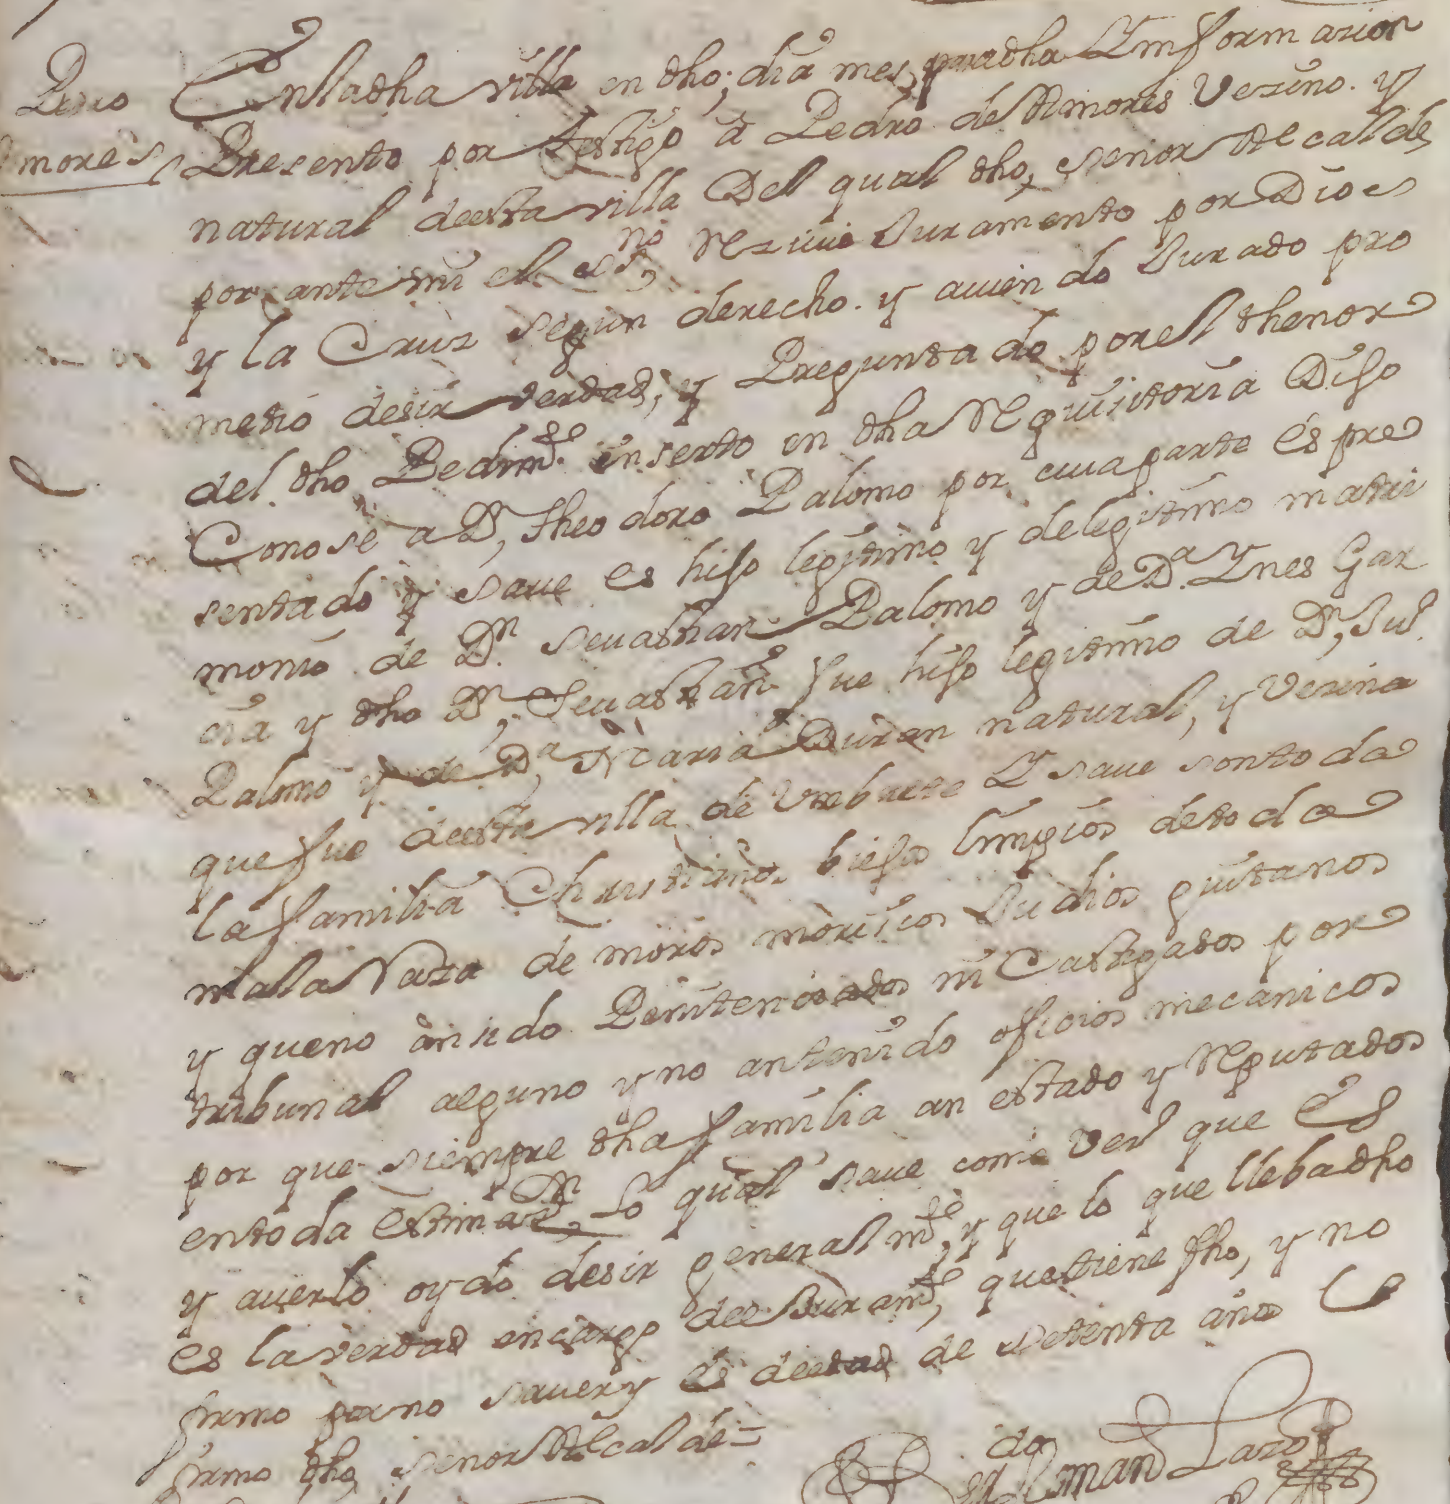 Pedro
Amores
En la dha villa en dho, dia mes, para dha Ynformazion
Presento por testigo a Pedro de Amores Vezino. y
natural de esta villa Del qual dho, señor Alcalde,
por ante mi el ssno Rezivio Juramento por Dios
y la Cruz segun derecho. y auiendo Jurado pro
metio desir verdad, y Preguntado por el thenor
del dho Pedimto. inserto en dha Requisitoria Dijo
Conose a Dn, Theodoro Palomo por cuia parte es pre
sentado y saue es hijo legitimo y de legitimo matri
monio de Dn. Seuastian Palomo y de Da. Ynes Gar
cia y dho Dn, Seuastian fue hijo legitimo de Dn, Jul.
Palomo y de Da, Maria Duran natural, y Vezina
que fue de esta villa de Vmbrete Y saue son toda
la familia Christianos biejos limpios de toda
mala Raza de moros moriscos Judios guitanos
y que no an sido Penitenciados ni Castigados por
tribunal alguno y no an tenido oficios mecanicos
por que siempre dha familia an estado y Reputados
en toda Estimasn, Lo qual saue como Vesl que Es
y auerlo oydo desir generalmte, y que lo que lleba dho
es la verdad en cargo del Juramto, que tiene fho, y no
firmo por no sauer y es de edad de setenta años Lo
firmo dho, señor Alcalde=
do
Roman Lazo